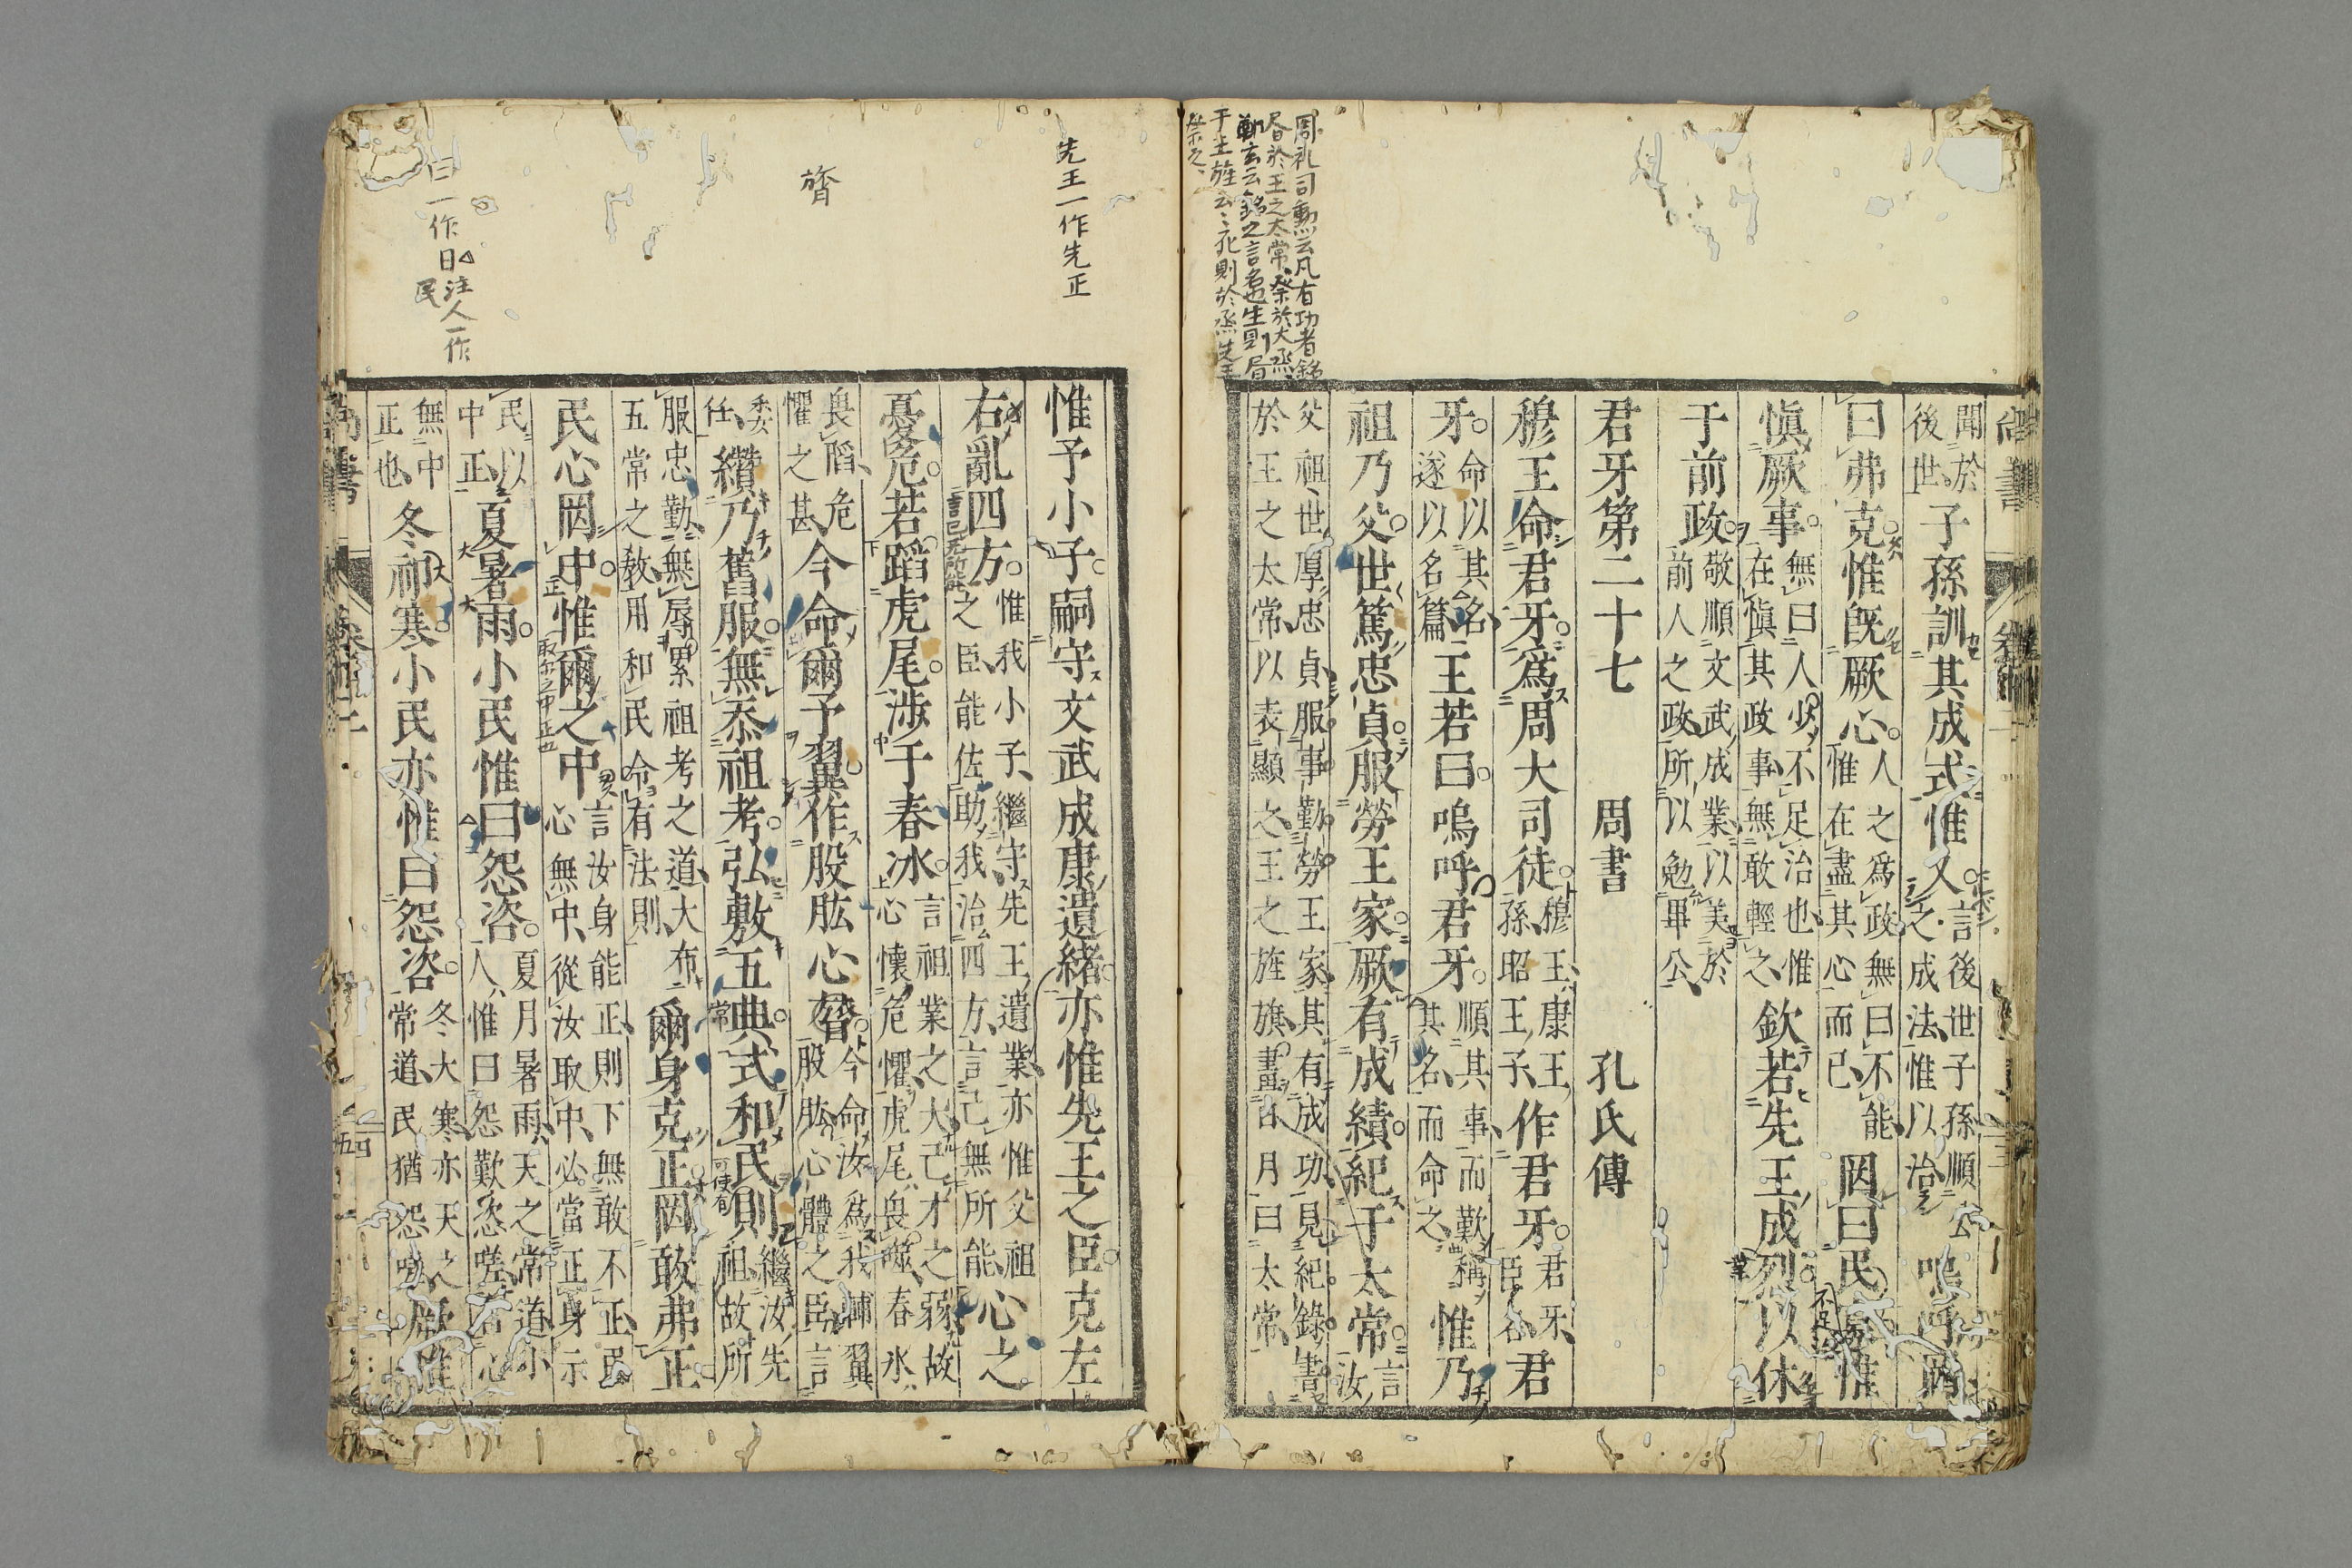 周礼司勲云凡有功者銘
昏於王之太常祭於大烝
鄭玄云銘之言名也生則
于王旌云〻死則於烝先王
祭之
尚書
聞於
後世
子孫訓其成式惟乂
言後世子孫順公
之成法惟以治
嗚呼罔
曰弗克惟旣厥心
人之爲政無曰不能
惟在盡其心而已
罔曰民寡惟
愼厥事
無曰人少不足治也惟
在愼其政事無敢輕之
欽若先王成烈以休
于前政
敬順文武成業以美於
前人之政所以勉畢公
君牙第二十七 周書 孔氏傳
穆王命君牙爲周大司徒
穆王康王
孫昭王子
王作君牙
君牙
臣名
君
牙
命以其名
遂以名篇
王若曰嗚呼君牙
順其事而歎稱
其名而命之
惟乃
祖乃父世篤忠貞服勞王家厥有成績紀于太常
言
汝
父祖世厚忠貞服事勤勞王家其有成功見紀錄書
於王之太常以表顯之王之旌旗畫日月曰太常
先王一作先正
膂
曰一作日注人一作
民
惟予小子嗣守文武成康遺緒亦惟先王之臣克左
右亂四方
惟我小子繼守先王遺業亦惟父祖
之臣能佐助我治四方言己無所能
心之
憂危若蹈虎尾涉于春冰
言祖業之大己才之弱故
心懷危懼虎尾畏噬春氷
畏䧟危
懼之甚
今命爾予翼作股肱心膂
今命汝爲我輔翼
股肱心體之臣言
委
任
纘乃舊服無忝祖考弘敷五典式和民則
繼汝先
祖故所
服忠勤無辱累祖考之道大布
五常之敎用和民令有法則
爾身克正罔敢弗正
民心罔中惟爾之中
言汝身能正則下無敢不正民
心無中從汝取中必當正身示
民以
中正
夏暑雨小民惟曰怨咨
夏月暑雨天之常道小
人惟曰怨歎咨嗟言心
無中
正也
冬祁寒小民亦惟曰怨咨
冬大寒亦天之
常道民猶怨嗟
厥惟
尚書